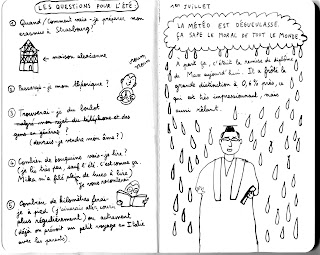 LES QUESTIONS POUR L'ÉTÉ
① Quand/comment vais-je préparer mon
erasmus à Strasbourg?
maison alsacienne
② Aurai-je mon
③ Trouverai-je du boulot
malgré mon rejet du téléphone et des
gens en général?
(devrais-je vendre mon âme?)
④ Combien de bouquins vais-je lire?
(je lis très peu, sauf en été. C'est comme ça.
Mika m'a filé plein de livres à lire)
Je vous raconterai
⑤ Combien de kilomètres ferai-
je à pied (j'aimerais aller courir
plus régulièrement) ou autrement
(déjà on prévoit un petit voyage en Italie
avec les parents).
1er JUILLET
LA MÉTÉO EST DÉGUEULASSE.
ÇA SAPE LE MORAL DE TOUT LE MONDE
À part ça, c'était la remise de diplôme
de Max aujourd'hui. Il a frôlé la
grande distinction à 0,6% près, ce
qui est très impressionnant, mais
aussi râlant.